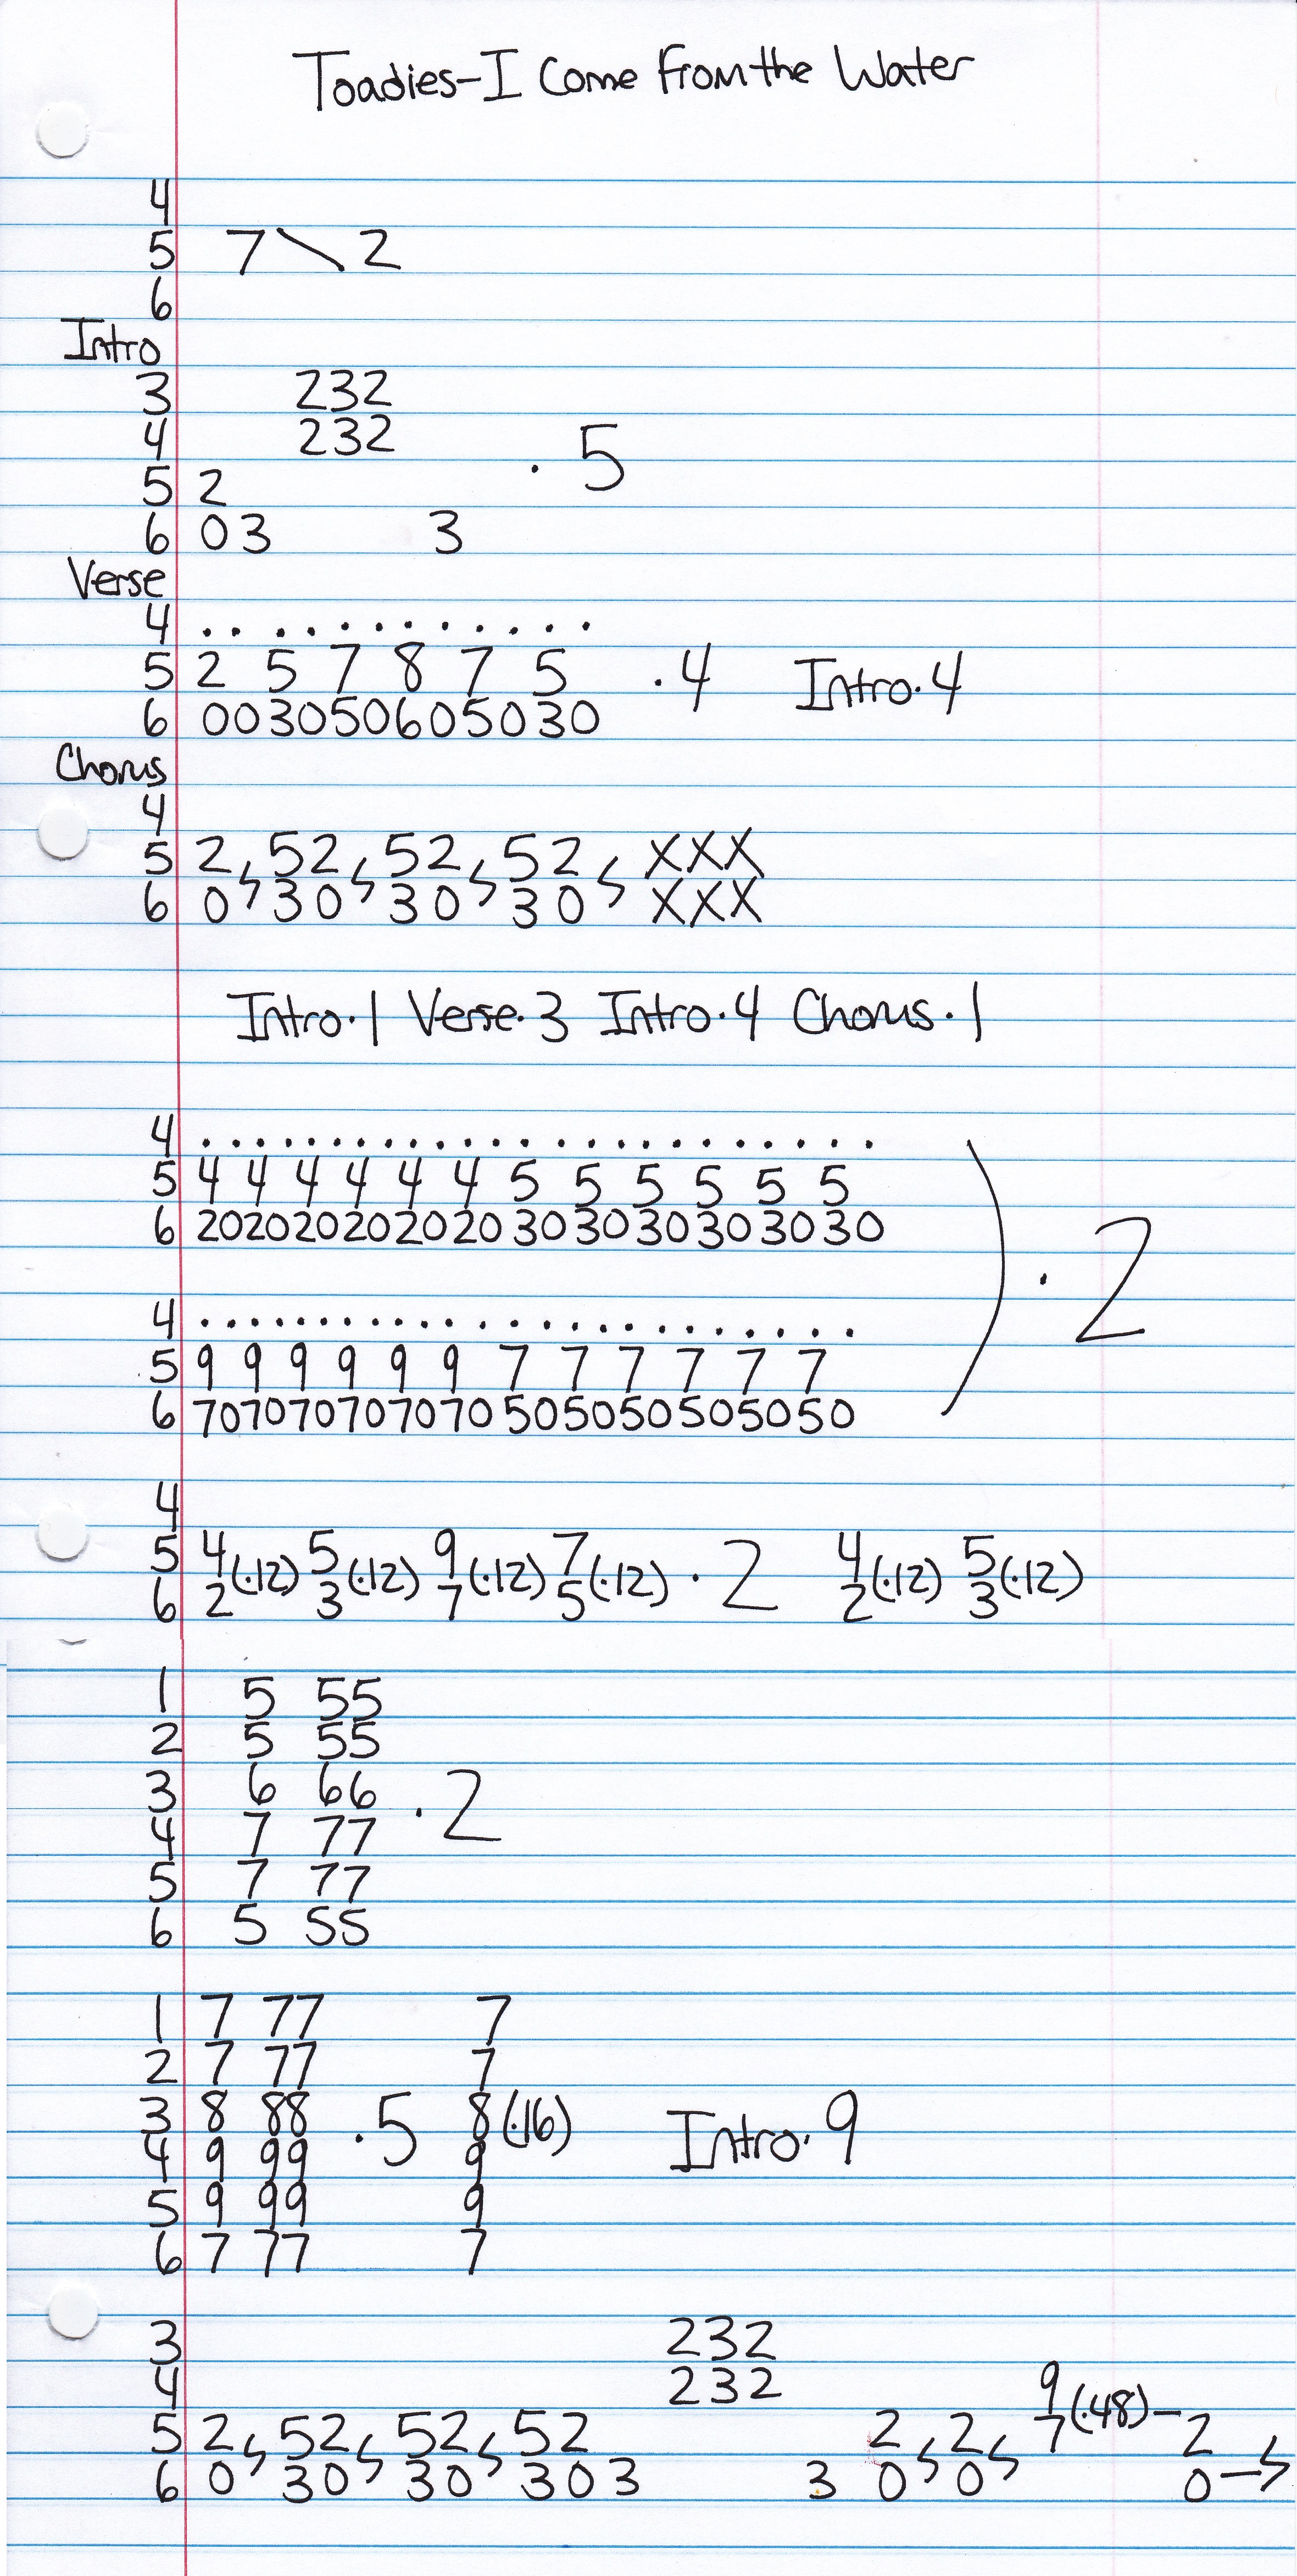 Toadies-I Come From the Water
4
5 7\2
6
Intro
3 232
4 232
5 2 · 5
6 03 3
Verse
4 . . . . . . . . . . . .
5 2 5 7 8 7 5 ·4 Intro·4
6 003050605030
Chorus
4
5 2, 52, 52, 52, XXX
6 0 30 30 30 XXX
Intro·1 Verse·3 Intro·4 Chorus·1
4 . . . . . . . . . . . . . . . . . . . . . . . .
5 4 4 4 4 4 4 5 5 5 5 5 5
6 202020202020303030303030 ) · 2
4 . . . . . . . . . . . . . . . . . . . . . . . .
5 9 9 9 9 9 9 7 7 7 7 7 7
6 707070707070505050505050
4
5 4(·12) 5(·12) 9(·12) 7(·12) · 2 4(·12) 5(·12)
6 2 3 7 5 2 3
1 5 55
2 5 55
3 6 66 · 2
4 7 77
5 7 77
6 5 55
1 7 77 7
2 7 77 7
3 8 88 · 5 8(·16) Intro·9
4 9 99 9
5 9 99 9
6 7 77 7
3 232
4 232 9
5 2, 52, 52, 52 2, 2, 7(·48)- 2
6 0 30 30 303 3 0 0 0-